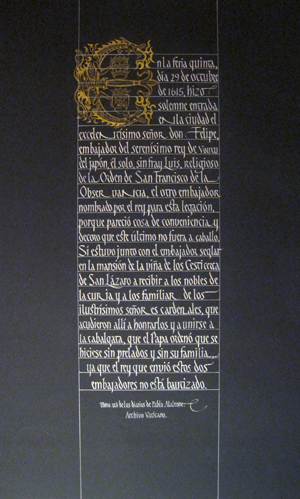 En la feria quinta,
día 29 de octubre
de 1615, hizo
solemne entrada
en la ciudad el
excelentísimo señor don Felipe,
embajador del serenísimo rey de
del japón, él solo, sin fray Luis, religioso
de la Orden de San Francisco de la
Observancia, el otro embajador
nombrado por el rey para esta legación,
porque pareció cosa de conveniencia y
decoro que este último no fuera a caballo.
Sí estuvo junto con el embajador seglar
en la mansión de la viña de los
de San Lázaro a recibir a los nobles de
la curia y a los familiares de los
ilustrísimos señores cardenales, que
acudieron allí a honrarlos y a unirse a
la cabalgata, que el Papa ordenó que se
hiciese sin prelados y sin su familia
ya que el rey que envió estos dos
embajadores no está bautizado.
de los diarios de Pablo
Archivo Vaticano.